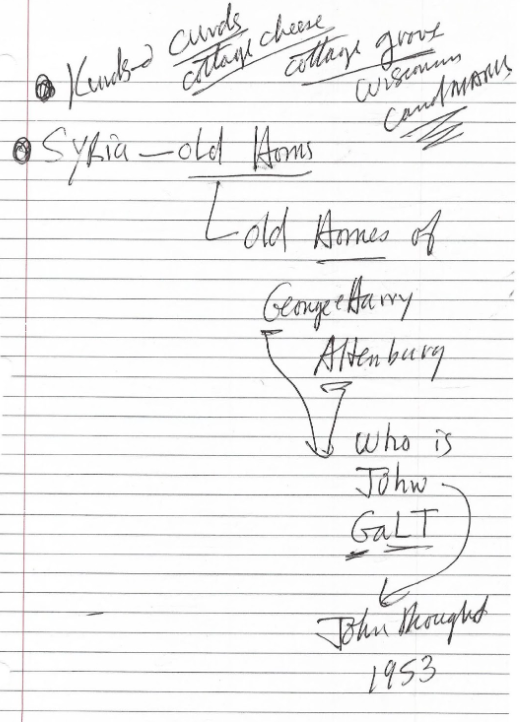 Kurds curds cottage grove
cottage cheese Wisconsin
Landmarks
Syria — old Homs
old Homes of
George & Harry
Altenburg
Who is
John
GaLT
John thought
1953